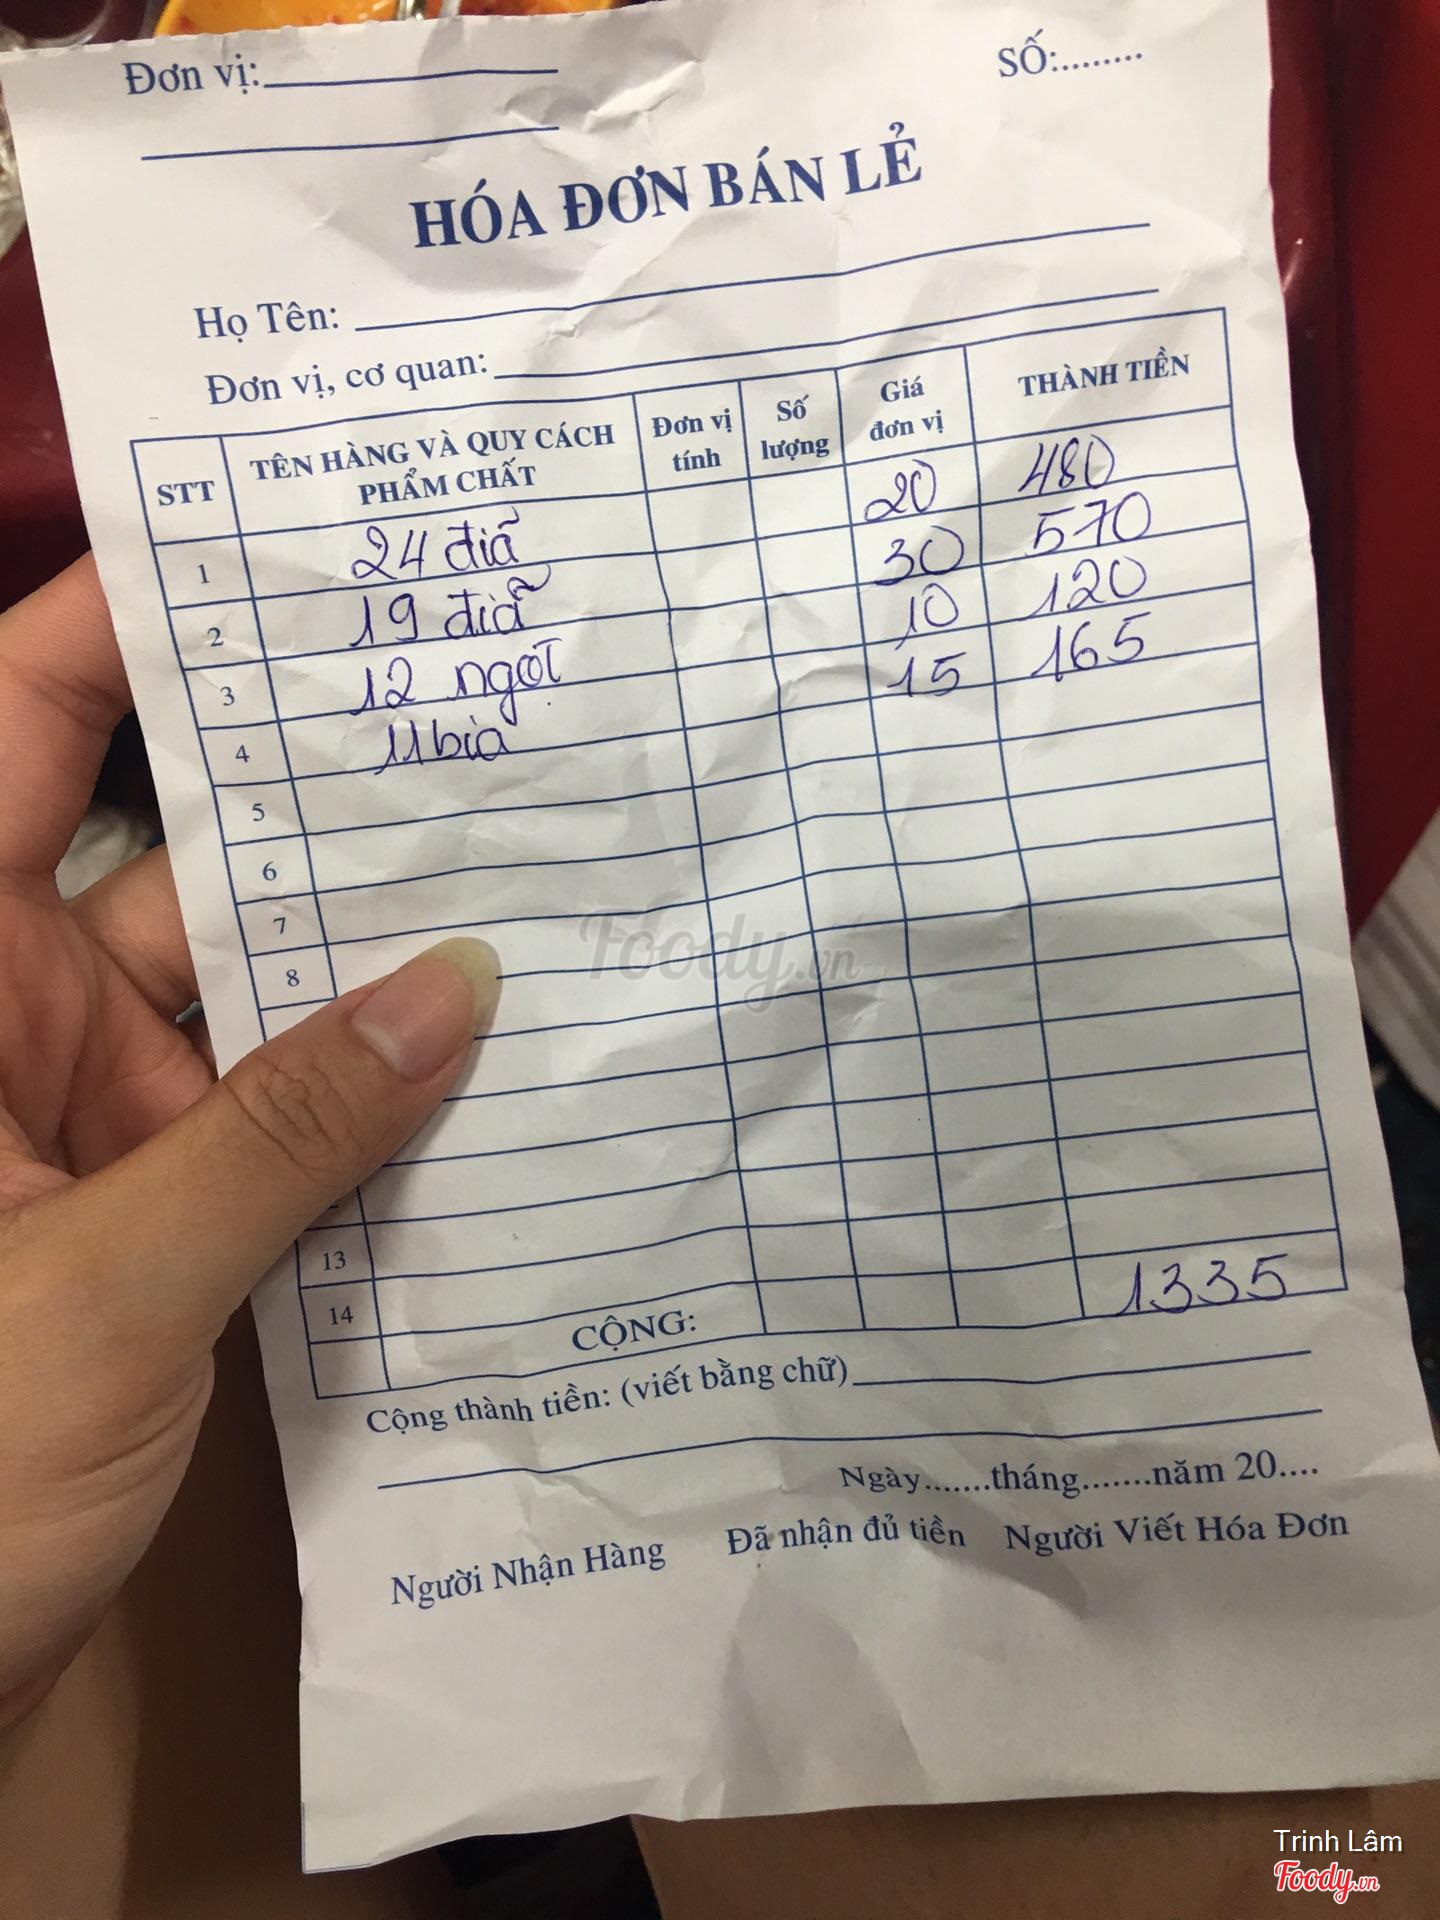 Đơn vị:
SỐ:.........
HÓA ĐƠN BÁN LẺ
Họ Tên:
Đơn vị, cơ quan:
STT TÊN HÀNG VÀ QUY CÁCH PHẨM CHẤT Đơn vị tính Số lượng Giá đơn vị THÀNH TIỀN
1 24 điã 20 480
2 19 điã 30 570
3 12 ngọt 10 120
4 11 bia 15 165
5
6
7
8
13
14
CỘNG: 1335
Cộng thành tiền: (viết bằng chữ)
Ngày.......tháng.......năm 20....
Người Nhận Hàng Đã nhận đủ tiền Người Viết Hóa Đơn
Foody.vn
Trinh Lâm
Foody.vn